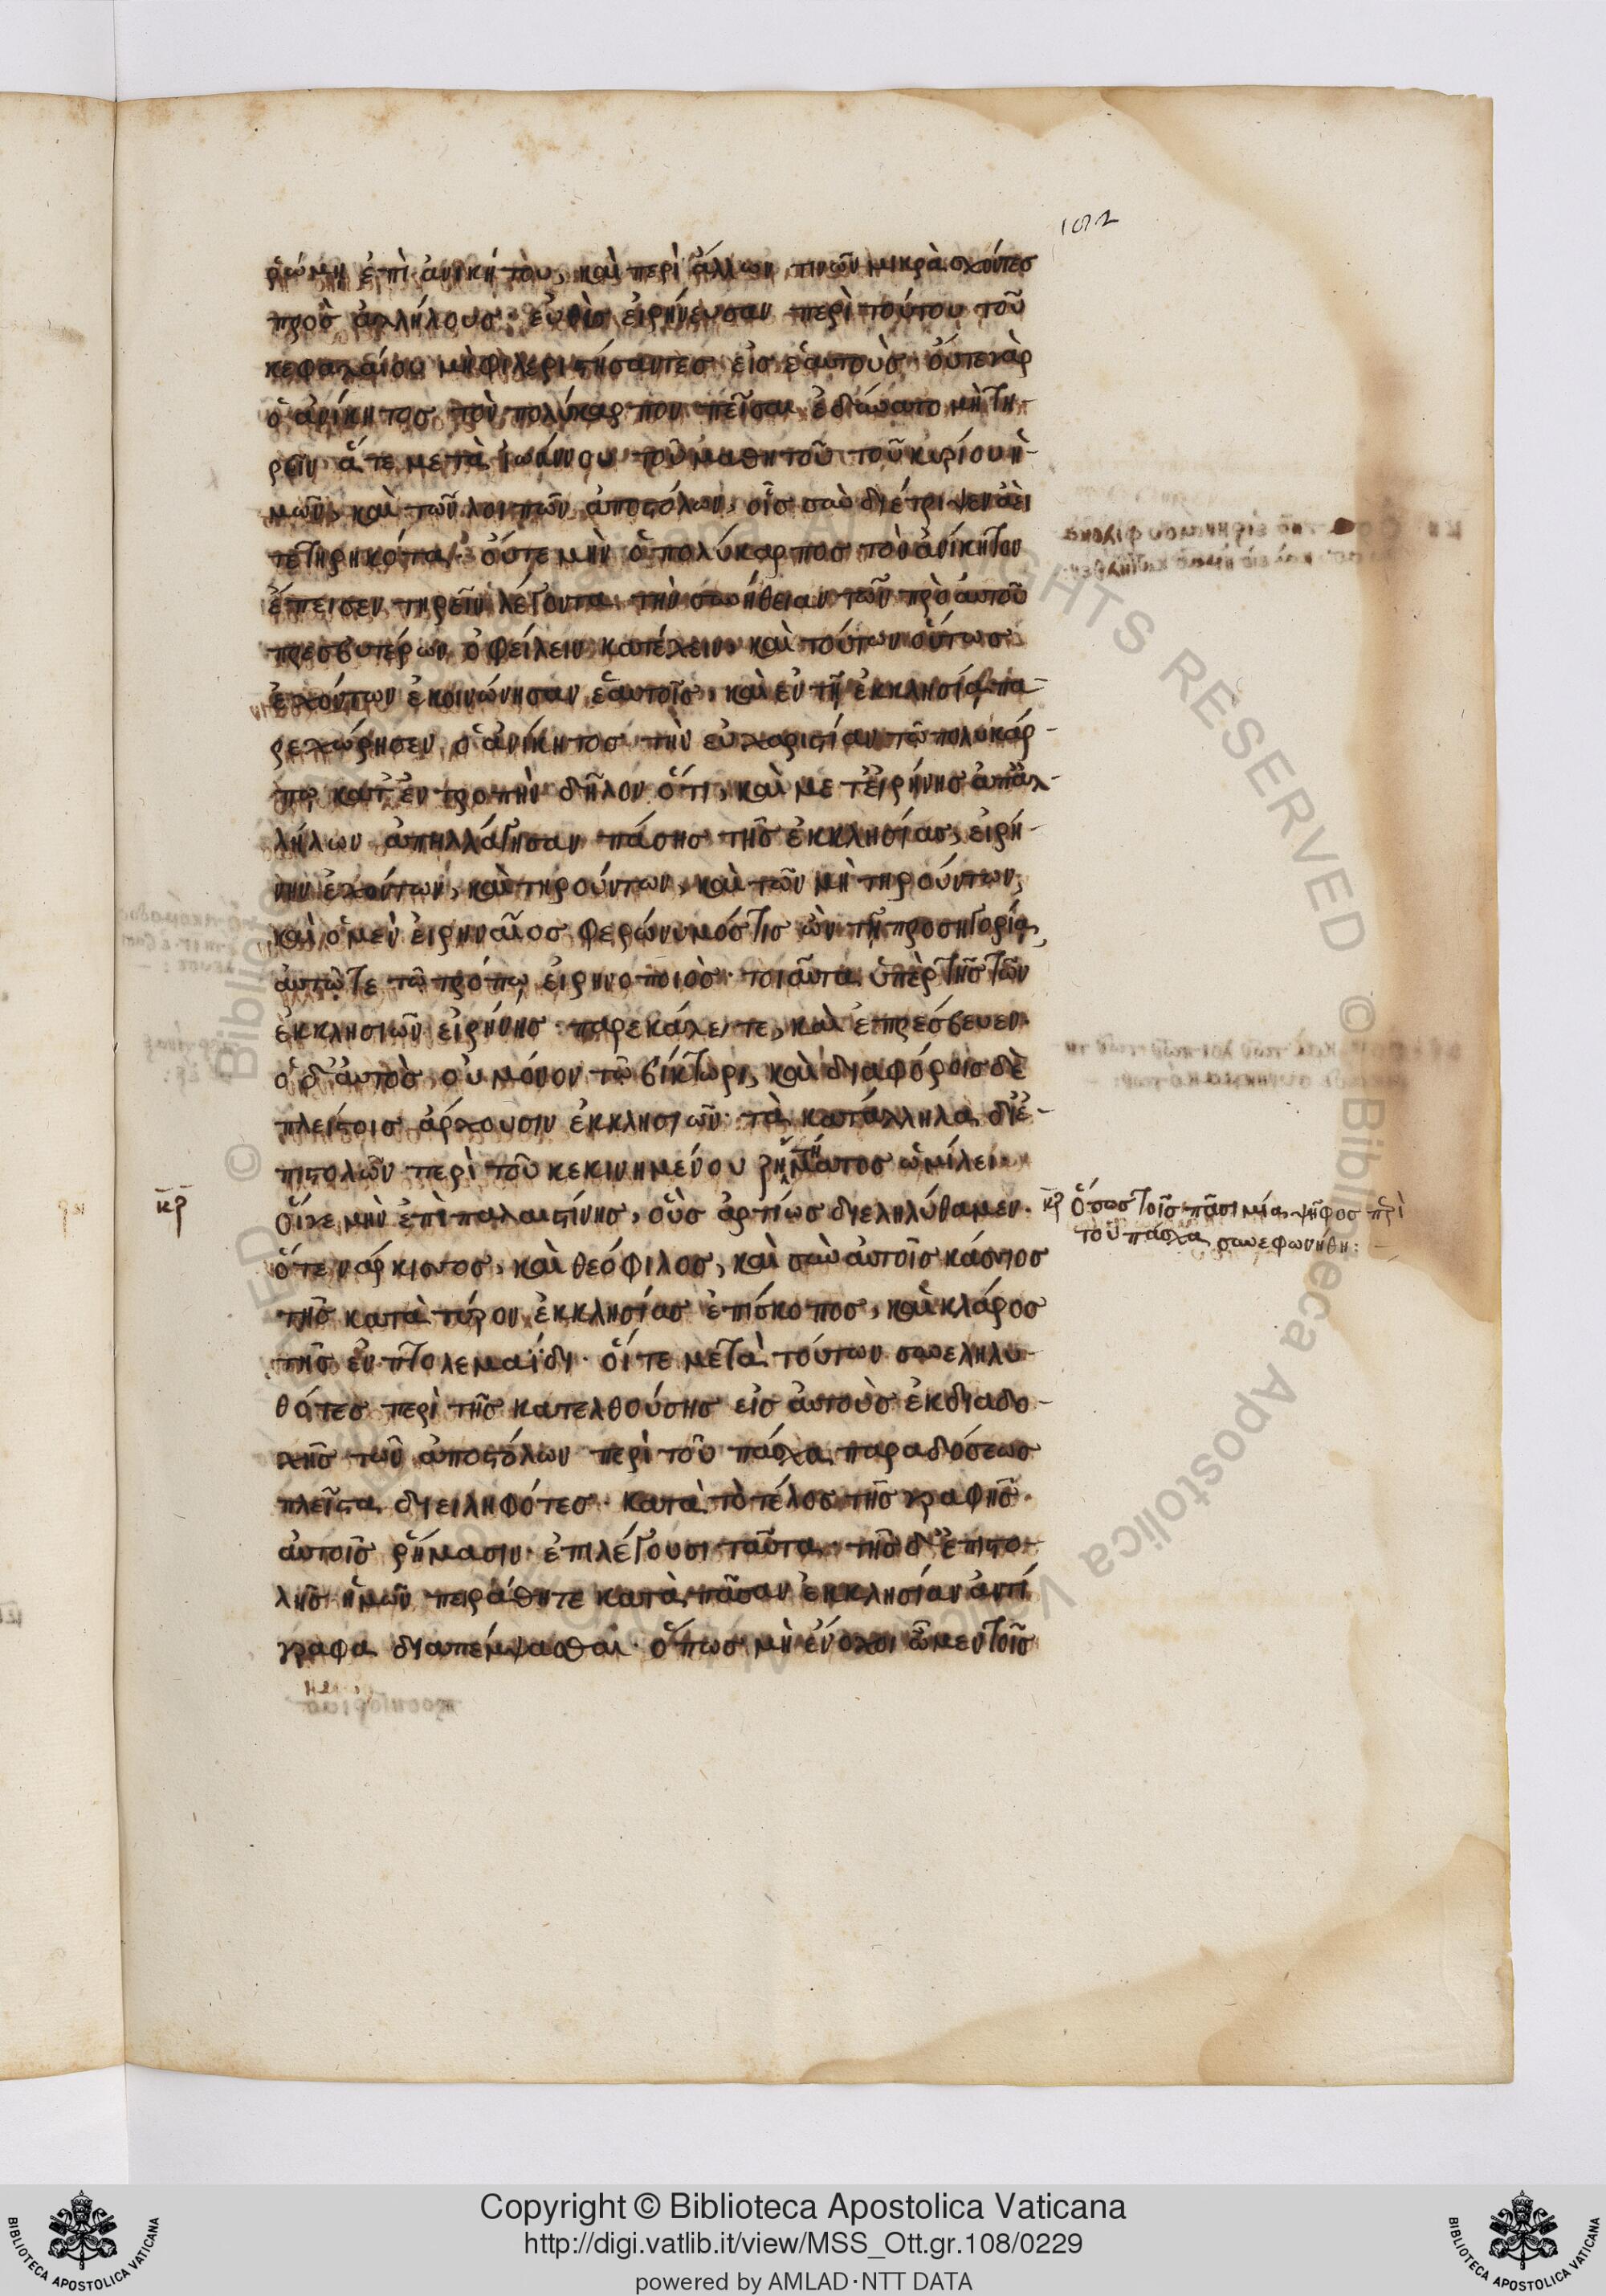 ῥώμῃ ἐπὶ ἀνικήτου, καὶ περὶ ἄλλων τινῶν μικρὰ σχόντες
πρὸς ἀλλήλους· εὐθὺς εἰρήνευσαν περὶ τούτου τοῦ
κεφαλαίου μὴ φιλεριστήσαντες εἰς ἑαυτούς· οὔτε γὰρ
ὁ ἀνίκητος τὸν πολύκαρπον πεῖσαι ἐδύνατο μὴ τη-
ρεῖν ἅτε μετὰ ἰωάννου τοῦ μαθητοῦ τοῦ κυρίου ἡ-
μῶν, καὶ τῶν λοιπῶν ἀποστόλων, οἷς συνδιέτριψεν ἀεὶ
τετηρηκότα· οὔτε μὴν ὁ πολύκαρπος τὸν ἀνίκητον
ἔπεισεν τηρεῖν λέγοντα τὴν συνήθειαν τῶν πρὸ αὐτοῦ
πρεσβυτέρων ὀφείλειν κατέχειν, καὶ τούτων οὕτως
ἐχόντων ἐκοινώνησαν ἑαυτοῖς, καὶ ἐν τῇ ἐκκλησίᾳ πα-
ρεχώρησεν ὁ ἀνίκητος τὴν εὐχαριστίαν τῷ πολυκάρ-
πῳ κατ' ἐντροπὴν δηλονότι, καὶ μετ' εἰρήνης ἀπ' ἀλ-
λήλων ἀπηλλάγησαν πάσης τῆς ἐκκλησίας, εἰρή-
νην ἐχόντων, καὶ τηρούντων, καὶ τῶν μὴ τηρούντων,
καὶ ὁ μὲν εἰρηναῖος φερώνυμός τις ὢν τῇ προσηγορίᾳ
αὐτῷ τε τῷ τρόπῳ εἰρηνοποιὸς· τοιαῦτα ὑπὲρ τῆς τῶν
ἐκκλησιῶν εἰρήνης παρεκάλει τε, καὶ ἐπρέσβευεν.
ὁ δ' αὐτὸς οὐ μόνον τῷ βίκτωρι, καὶ διαφόροις δὲ
πλείστοις ἄρχουσιν ἐκκλησιῶν· τὰ κατάλληλα δι' ἐ-
πιστολῶν περὶ τοῦ κεκινημένου ζητήματος ὡμίλει
κγ
οἵ γε μὴν ἐπὶ παλαιστίνης, οὓς ἀρτίως διεληλύθαμεν·
κγ ὅπως τοῖς πᾶσι μία ψῆφος περὶ
τοῦ πάσχα συνεφωνήθη:
ὅ τε νάρκισσος, καὶ θεόφιλος, καὶ σὺν αὐτοῖς κάσσιος
τῆς κατὰ τύρον ἐκκλησίας ἐπίσκοπος, καὶ κλάρος
τῆς ἐν πτολεμαΐδι· οἵ τε μετὰ τούτων συνεληλυ-
θότες περὶ τῆς κατελθούσης εἰς αὐτοὺς ἐκ διαδο-
χῆς τῶν ἀποστόλων περὶ τοῦ πάσχα παραδόσεως
πλεῖστα διειληφότες· κατὰ τὸ τέλος τῆς γραφῆς·
αὐτοῖς ῥήμασιν· ἐπιλέγουσι ταῦτα· τῆς δ' ἐπιστο-
λῆς ἡμῶν πειράθητε κατὰ πᾶσαν ἐκκλησίαν ἀντί
γραφα διαπέμψασθαι· ὅπως μὴ ἔνοχοι ὦμεν τοῖς
Copyright © Biblioteca Apostolica Vaticana
http://digi.vatlib.it/view/MSS_Ott.gr.108/0229
powered by AMLAD·NTT DATA
BIBLIOTECA APOSTOLICA VATICANA
BIBLIOTECA APOSTOLICA VATICANA